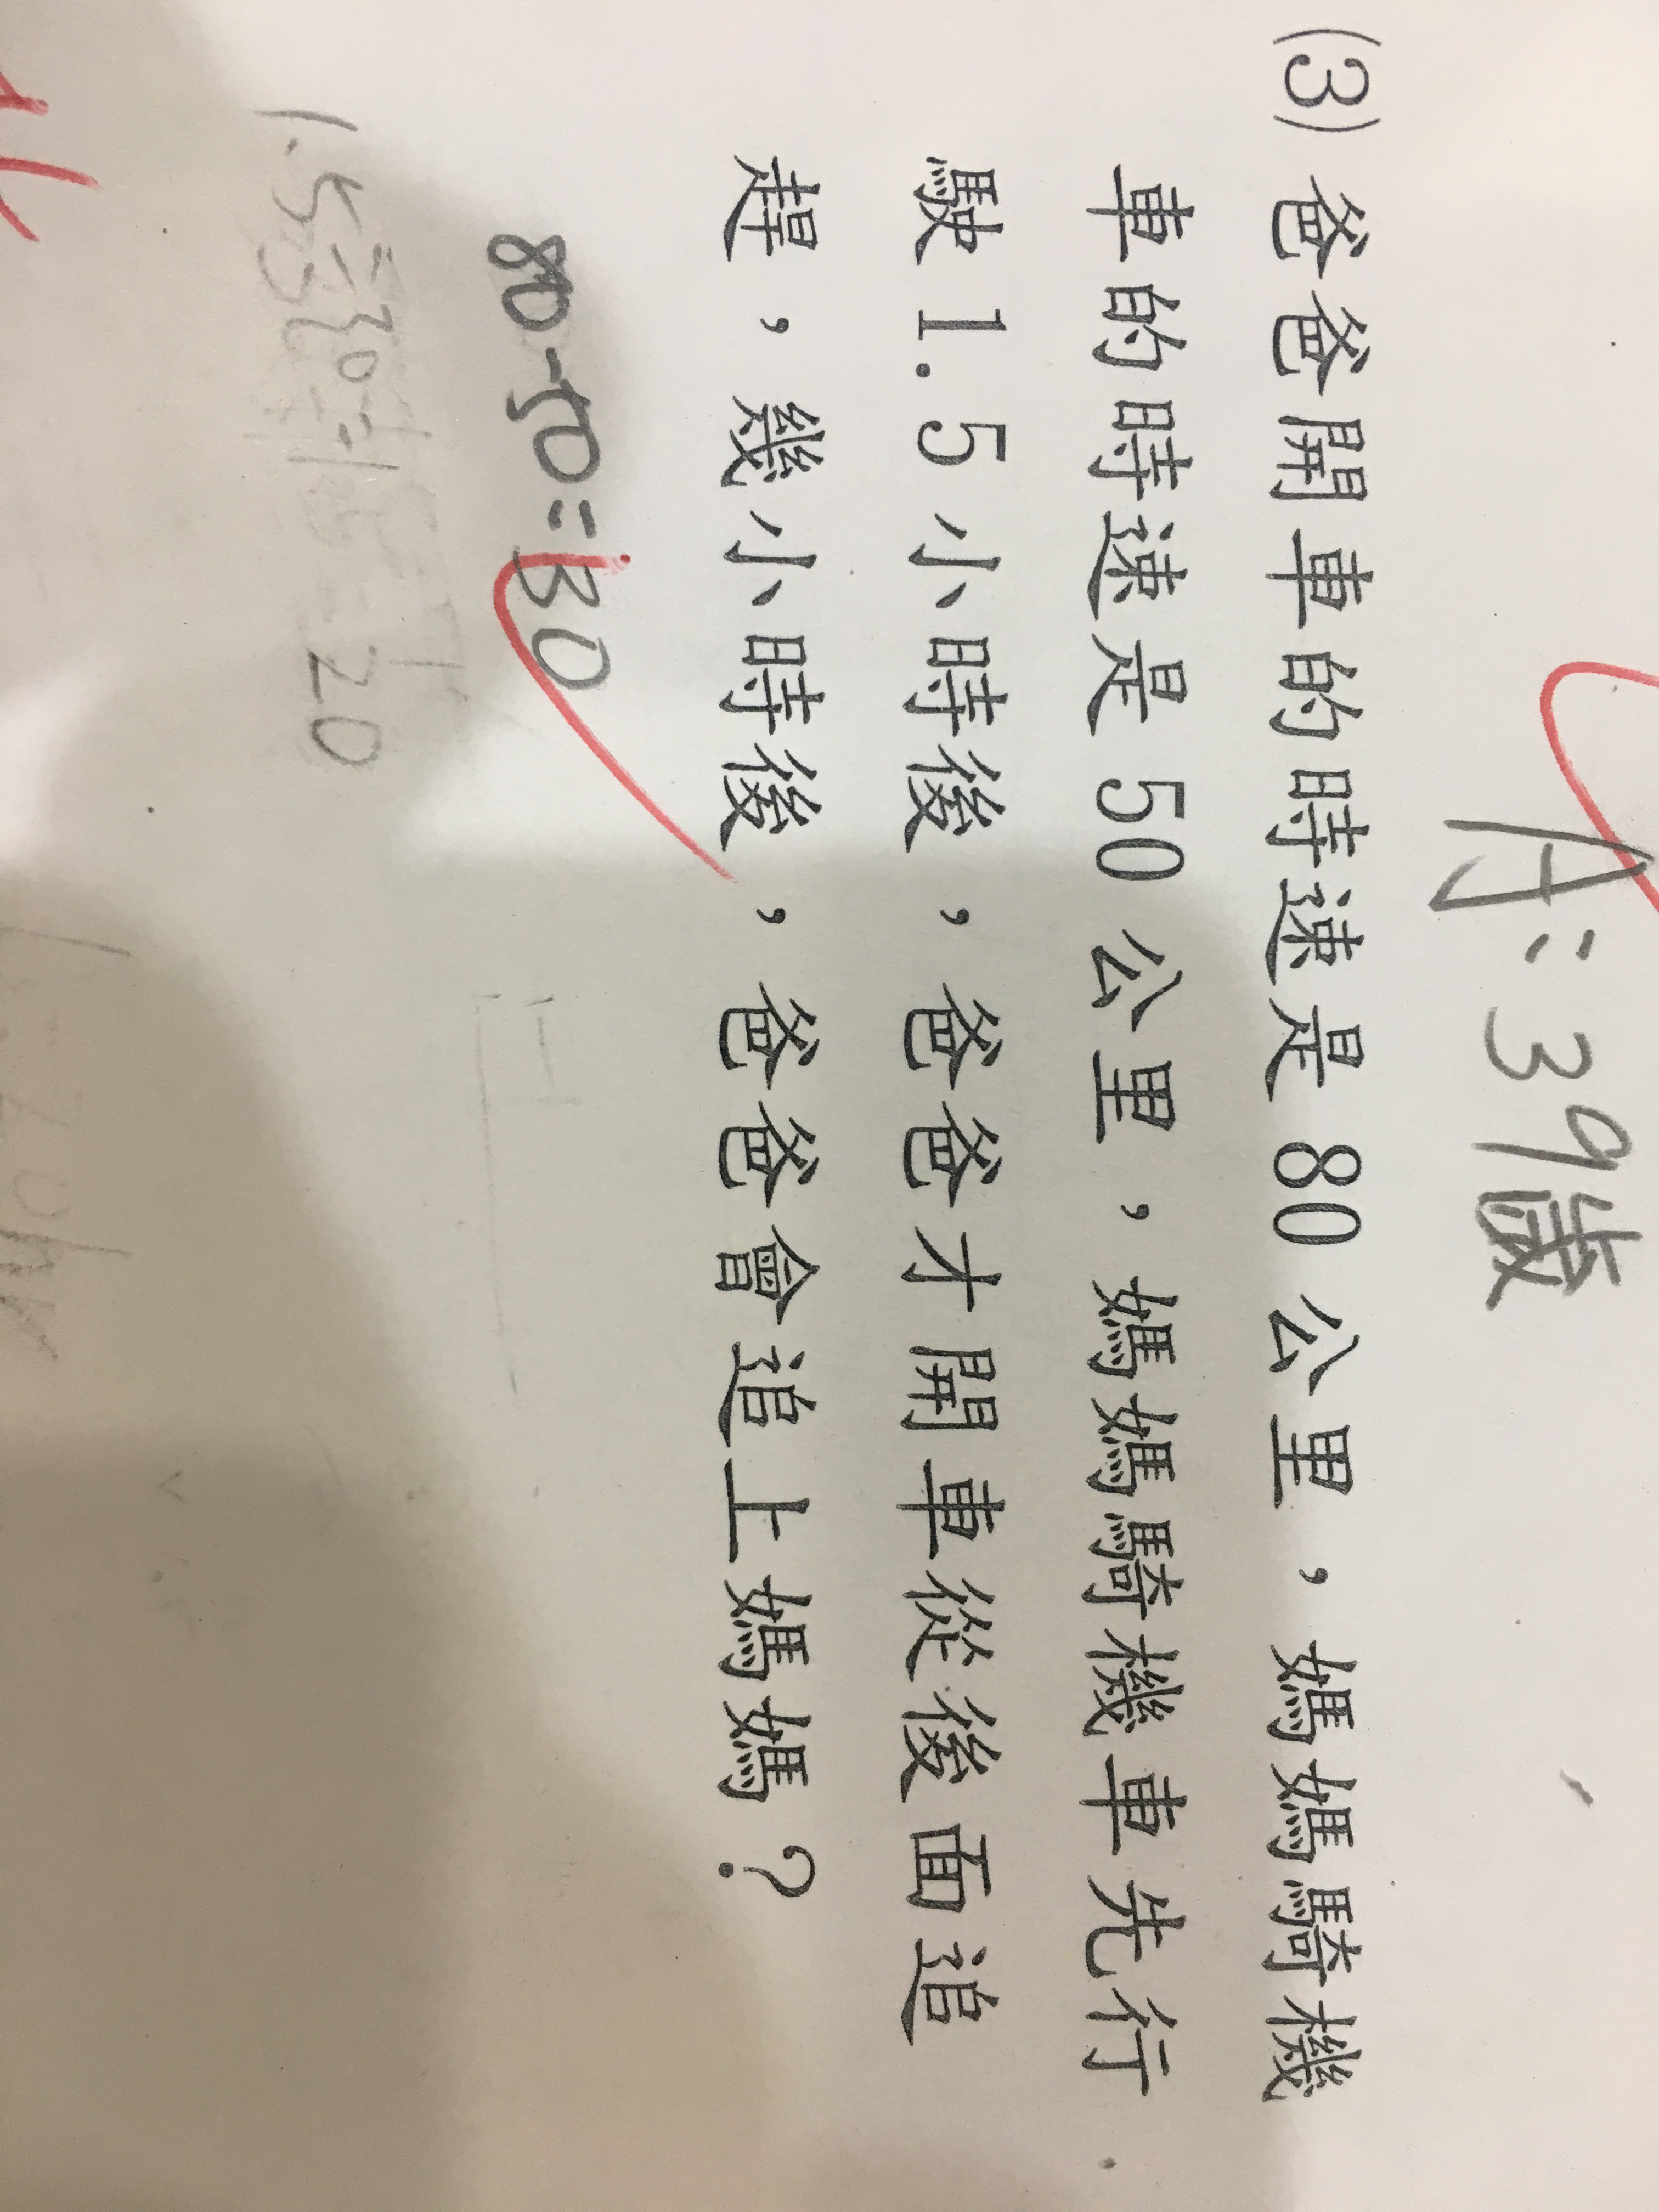 A:39歲
(3) 爸爸開車的時速是 80 公里，媽媽騎機
車的時速是 50 公里，媽媽騎機車先行
駛 1.5 小時後，爸爸才開車從後面追
趕，幾小時後，爸爸會追上媽媽？
80-50=30